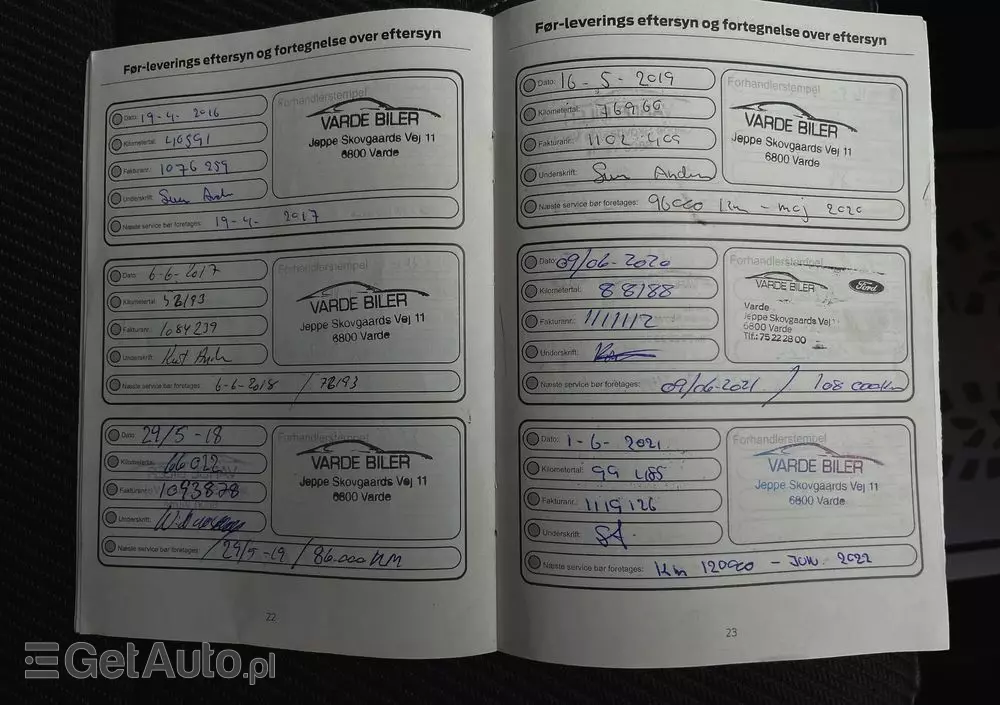 Før-leverings eftersyn og fortegnelse over eftersyn
Dato: 19-4. 2016
Kilometertal: 40591
Fakturanr.: 1076259
Underskrift:
Næste service bør foretages: 19-4. 2017
Forhandlerstempel
VARDE BILER
Jeppe Skovgaards Vej 11
6800 Varde
Dato: 6-6-2017
Kilometertal: 58193
Fakturanr.: 1084239
Underskrift:
Næste service bør foretages: 6-6-2018 / 78193
Forhandlerstempel
VARDE BILER
Jeppe Skovgaards Vej 11
6800 Varde
Dato: 29/5-18
Kilometertal: 66022
Fakturanr.: 1093878
Underskrift:
Næste service bør foretages: 29/5-19 / 86.000 KM
Forhandlerstempel
VARDE BILER
Jeppe Skovgaards Vej 11
6800 Varde
22
Før-leverings eftersyn og fortegnelse over eftersyn
Dato: 16-5-2019
Kilometertal: 76966
Fakturanr.: 1102409
Underskrift:
Næste service bør foretages: 96000 Km - maj 2020
Forhandlerstempel
VARDE BILER
Jeppe Skovgaards Vej 11
6800 Varde
Dato: 09/06-2020
Kilometertal: 88188
Fakturanr.: 1111112
Underskrift:
Næste service bør foretages: 09/06-2021 / 108 000km
Forhandlerstempel
VARDE BILER
Ford
Varde
Jeppe Skovgaards Vej
6800 Varde
Tlf.: 75 22 28 00
Dato: 1-6-2021
Kilometertal: 99485
Fakturanr.: 1119126
Underskrift: SA
Næste service bør foretages: Km 120000 - Juni 2022
Forhandlerstempel
VARDE BILER
Jeppe Skovgaards Vej 11
6800 Varde
23
GetAuto.pl